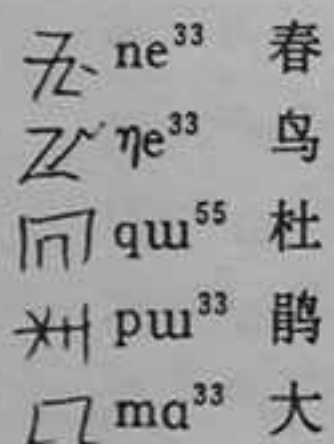 ne³³ 春
ηe³³ 鸟
qɯ⁵⁵ 杜
pɯ³³ 鹃
mɑ³³ 大